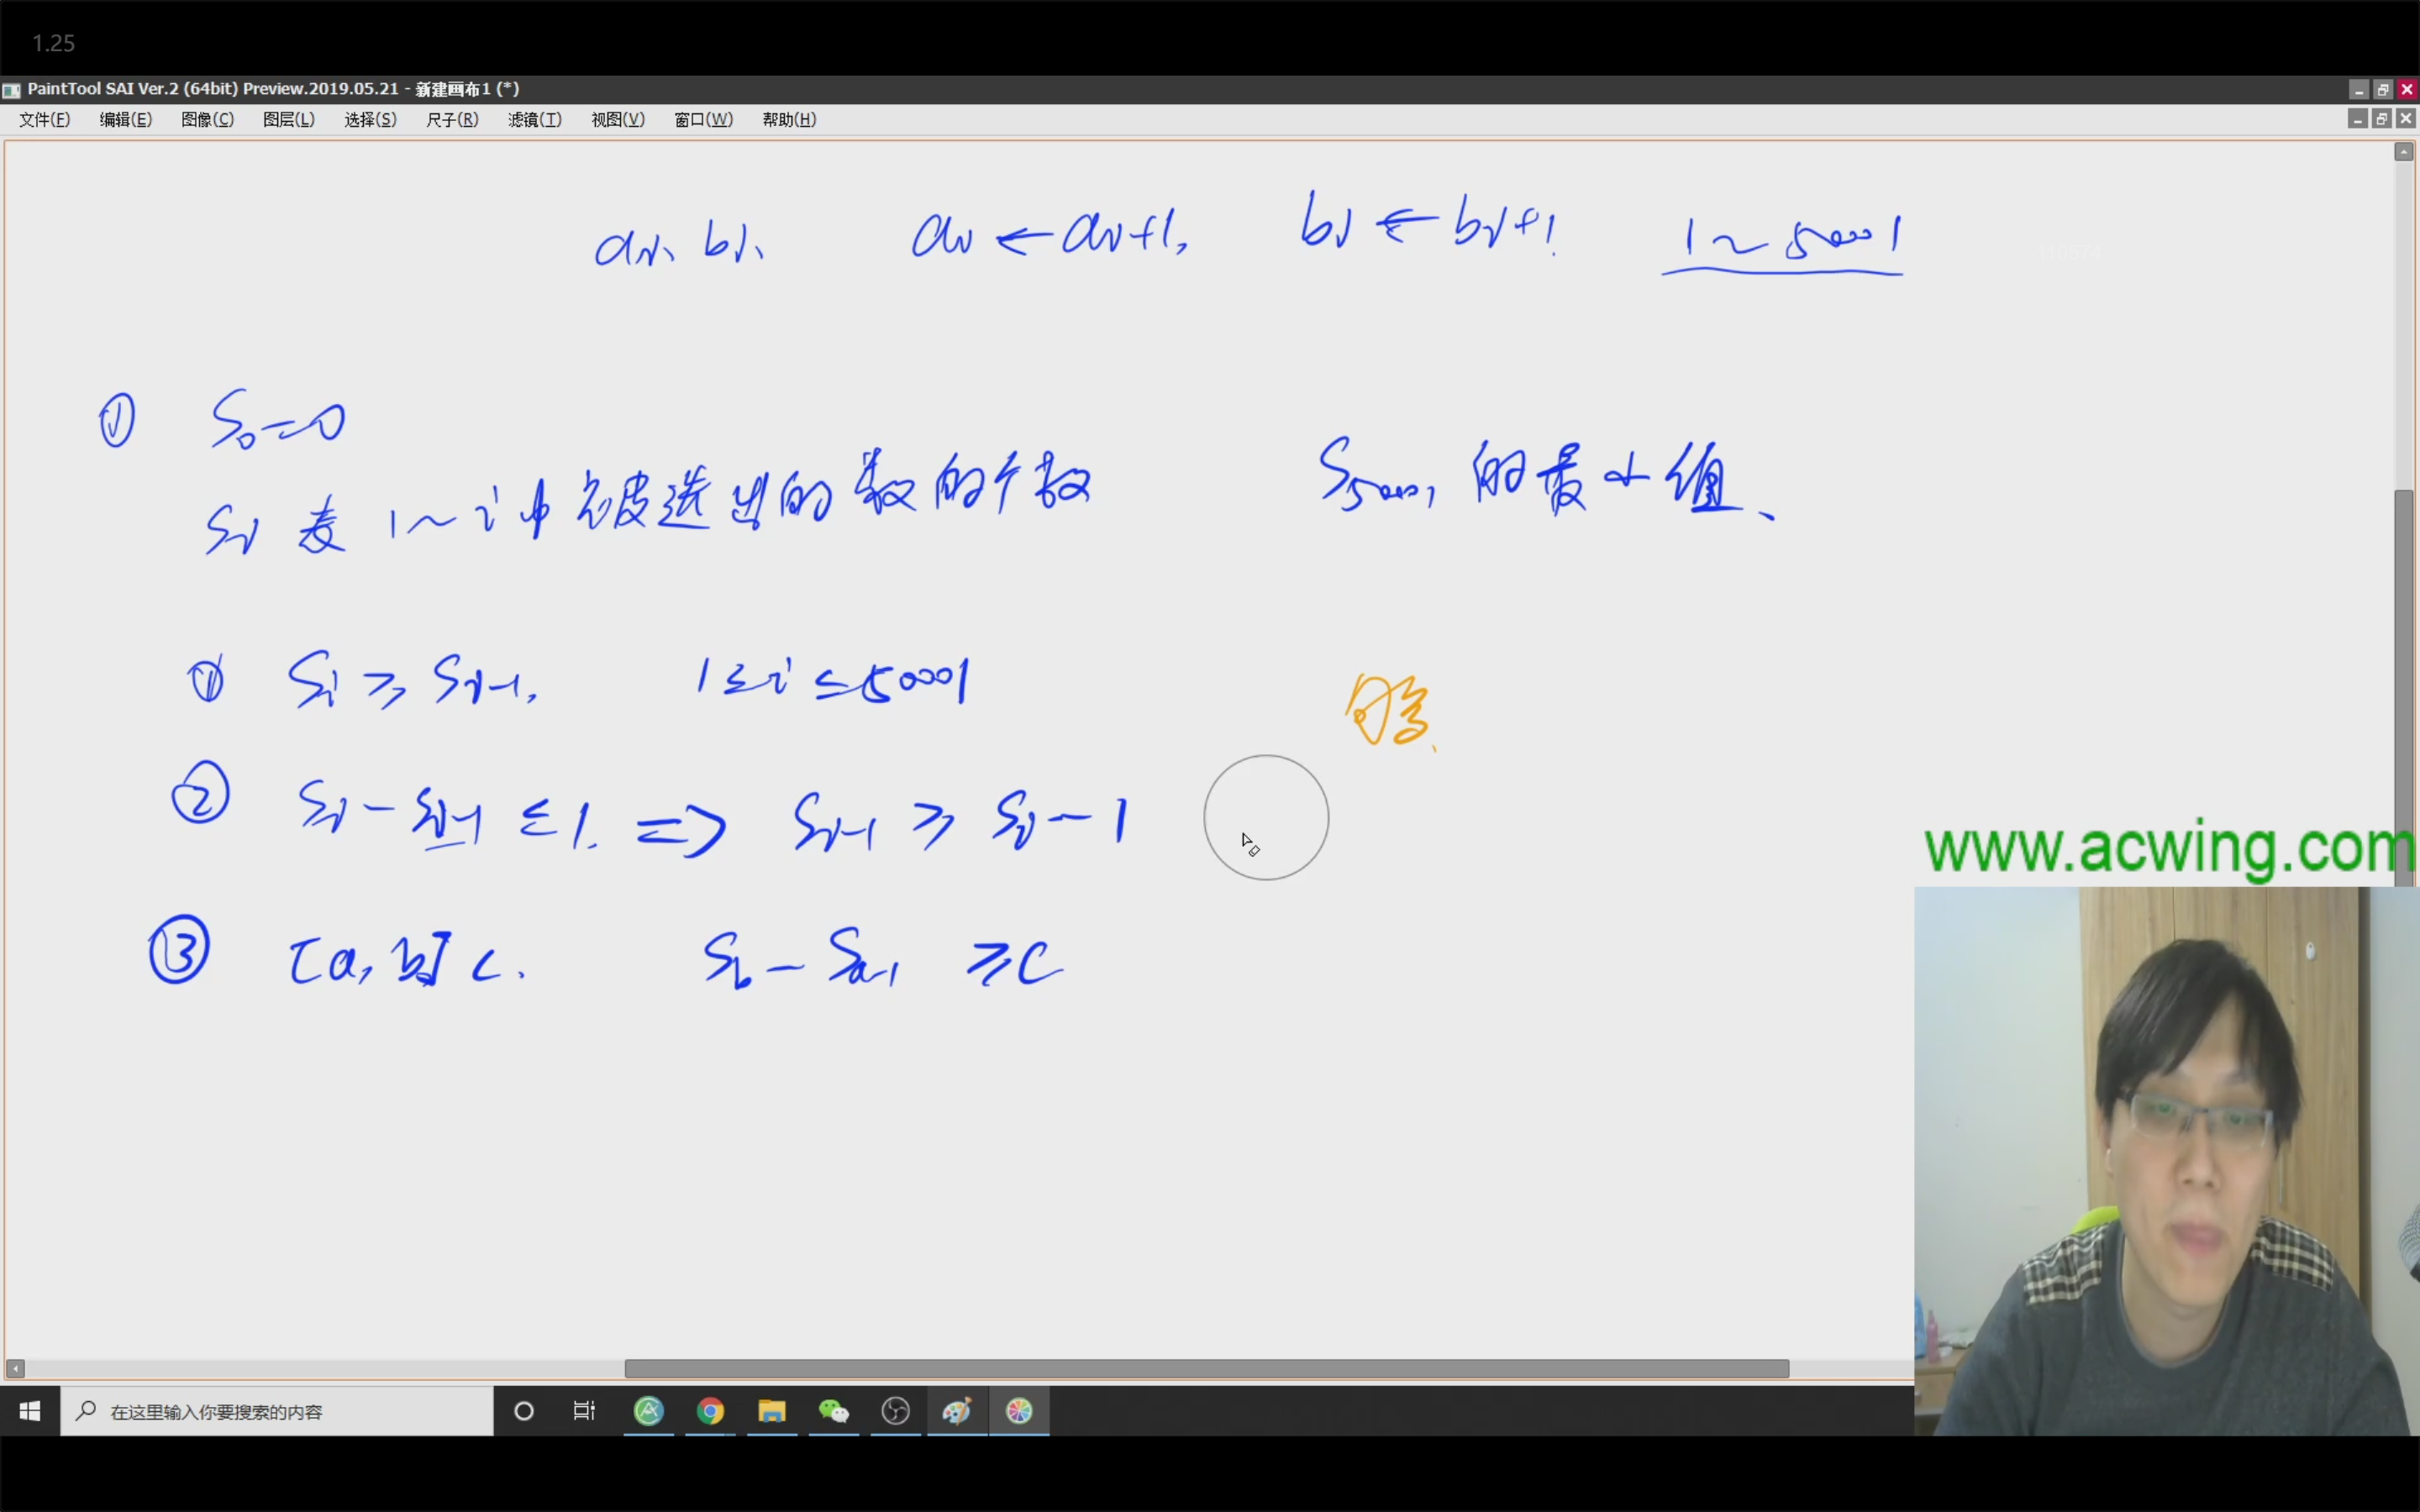 1.25
PaintTool SAI Ver.2 (64bit) Preview.2019.05.21 - 新建画布1 (*)
文件(F) 编辑(E) 图像(C) 图层(L) 选择(S) 尺子(R) 滤镜(T) 视图(V) 窗口(W) 帮助(H)
ai、bi、 ai ← ai+1, bi ← bi+1. 1～50001
① S0=0
Si 表 1～i 中被选出的数的个数 S50001 的最小值、
① Si ≥ Si-1, 1≤i≤50001
够、
② Si - Si-1 ≤ 1. => Si-1 ≥ Si - 1
③ [a, b] c. Sb - Sa-1 ≥ c
www.acwing.com
在这里输入你要搜索的内容